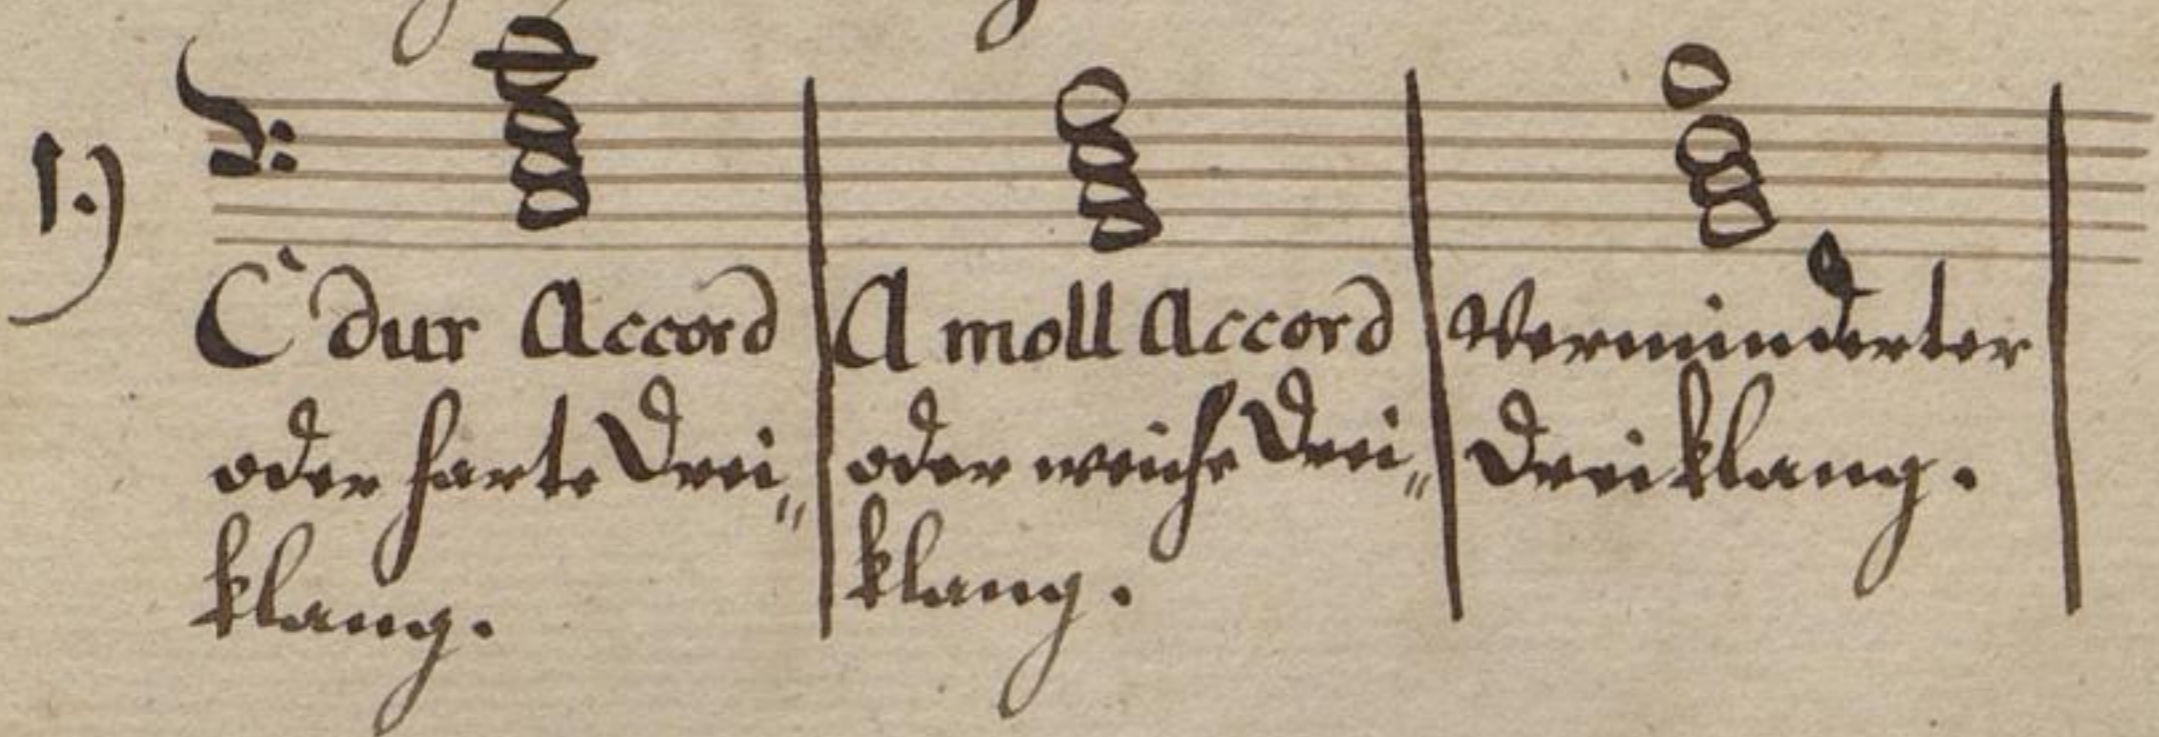 1.)
C dur Accord
oder harte Drei„
klang.
A moll Accord
oder weiche Drei„
klang.
Verminderter
Dreiklang.